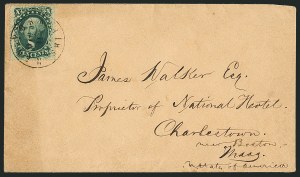 James Walker Esq.
Proprietor of National Hotel
Charlestown.
near Boston
Mass.
States of America